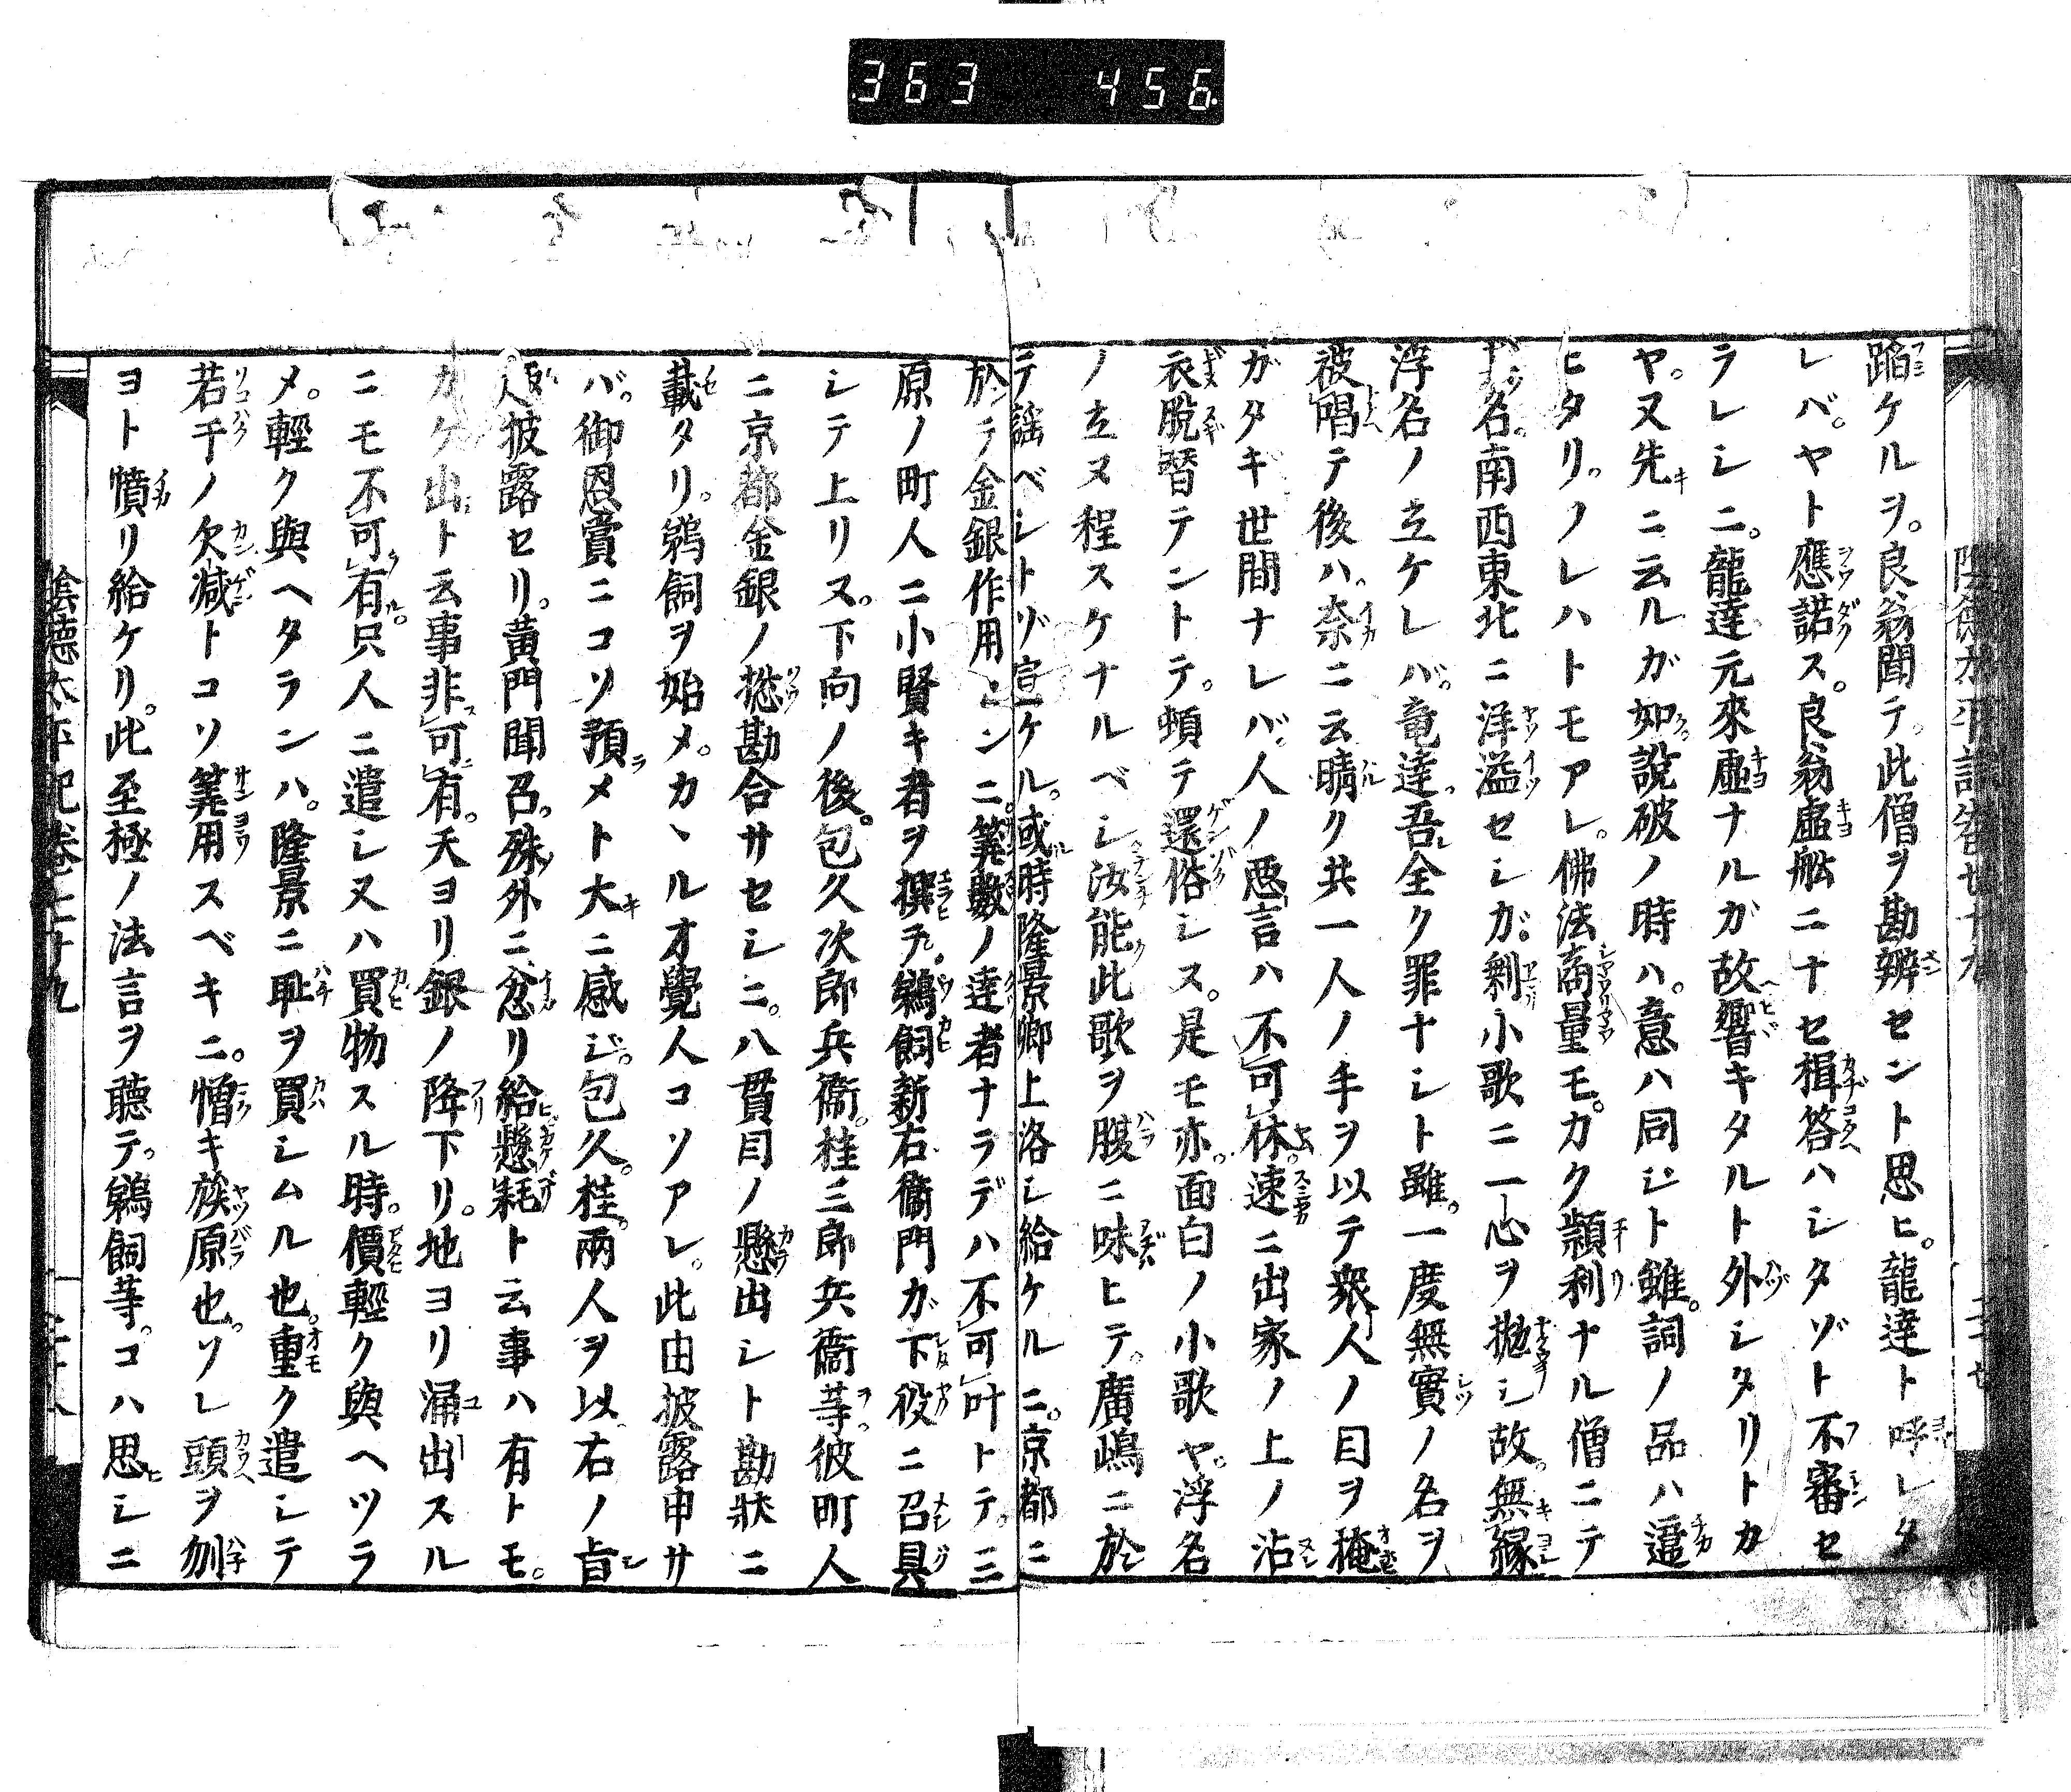 363 456
蹈ケルヲ。良翁聞テ。此僧ヲ勘辨セント思ヒ。龍達ト呼レタ
レバ。ヤト應諾ス。良翁虚舩ニナセ揖答ハシタゾト不審セ
ラレシニ。龍達元來虚ナルガ故響キタルト外シタリトカ
ヤ。又先ニ云ルガ如。說破ノ時ハ。意ハ同ジト雖。詞ノ品ハ逼
ヒタリ。ノレハトモアレ。佛法商量モ。カク穎利ナル僧ニテ
名。南西東北ニ洋溢セシガ。剰小歌ニ一心ヲ拋シ故。無縁
浮名ノ立ケレバ。竜達。吾全ク罪ナシト雖。一度無實ノ名ヲ
被唱テ後ハ。奈ニ云晴ク共一人ノ手ヲ以テ衆人ノ目ヲ掩
ガタキ世間ナレバ。人ノ悪言ハ不可休。速ニ出家ノ上ノ沾
衣脫替テントテ。頓テ還俗シス。是モ亦。面白ノ小歌ヤ。浮名
ノ立ヌ程スケナルベシ汝能此歌ヲ腹ニ味ヒテ。廣嶋ニ於
テ謡ベシトゾ宣ケル。或時隆景卿上洛シ給ケルニ。京都ニ
於テ金銀作用センニ。筭數ノ達者ナラデハ不可叶トテ。三
原ノ町人ニ小賢キ者ヲ撰テ。鵜飼新右衞門ガ下役ニ召具
シテ上リヌ。下向ノ後。包久次郎兵衞。桂三郎兵衞等彼町人
ニ京都金銀ノ惣勘合サセシニ。八貫目ノ懸出シト勘狀ニ
載タリ。鵜飼ヲ始メ。カヽルオ覺人コソアレ。此由披露申サ
バ。御恩賞ニコソ預メト大ニ感ジ。包久。桂。兩人ヲ以。右ノ旨
披露セリ。黄門聞召。殊外ニ忿リ給懸耗ト云事ハ有トモ。
カケ出ト云事非可有。天ヨリ銀ノ降下リ。地ヨリ涌出スル
ニモ不可有。只人ニ遣シ又ハ買物スル時。價輕ク與ヘツラ
メ。輕ク與ヘタランハ。隆景ニ耻ヲ買シムル也。重ク遣シテ
若干ノ欠減トコソ筭用スベキニ。憎キ族原也。ソレ頭ヲ刎
ヨト憤リ給ケリ。此至極ノ法言ヲ聴テ。鵜飼等。コハ思シニ